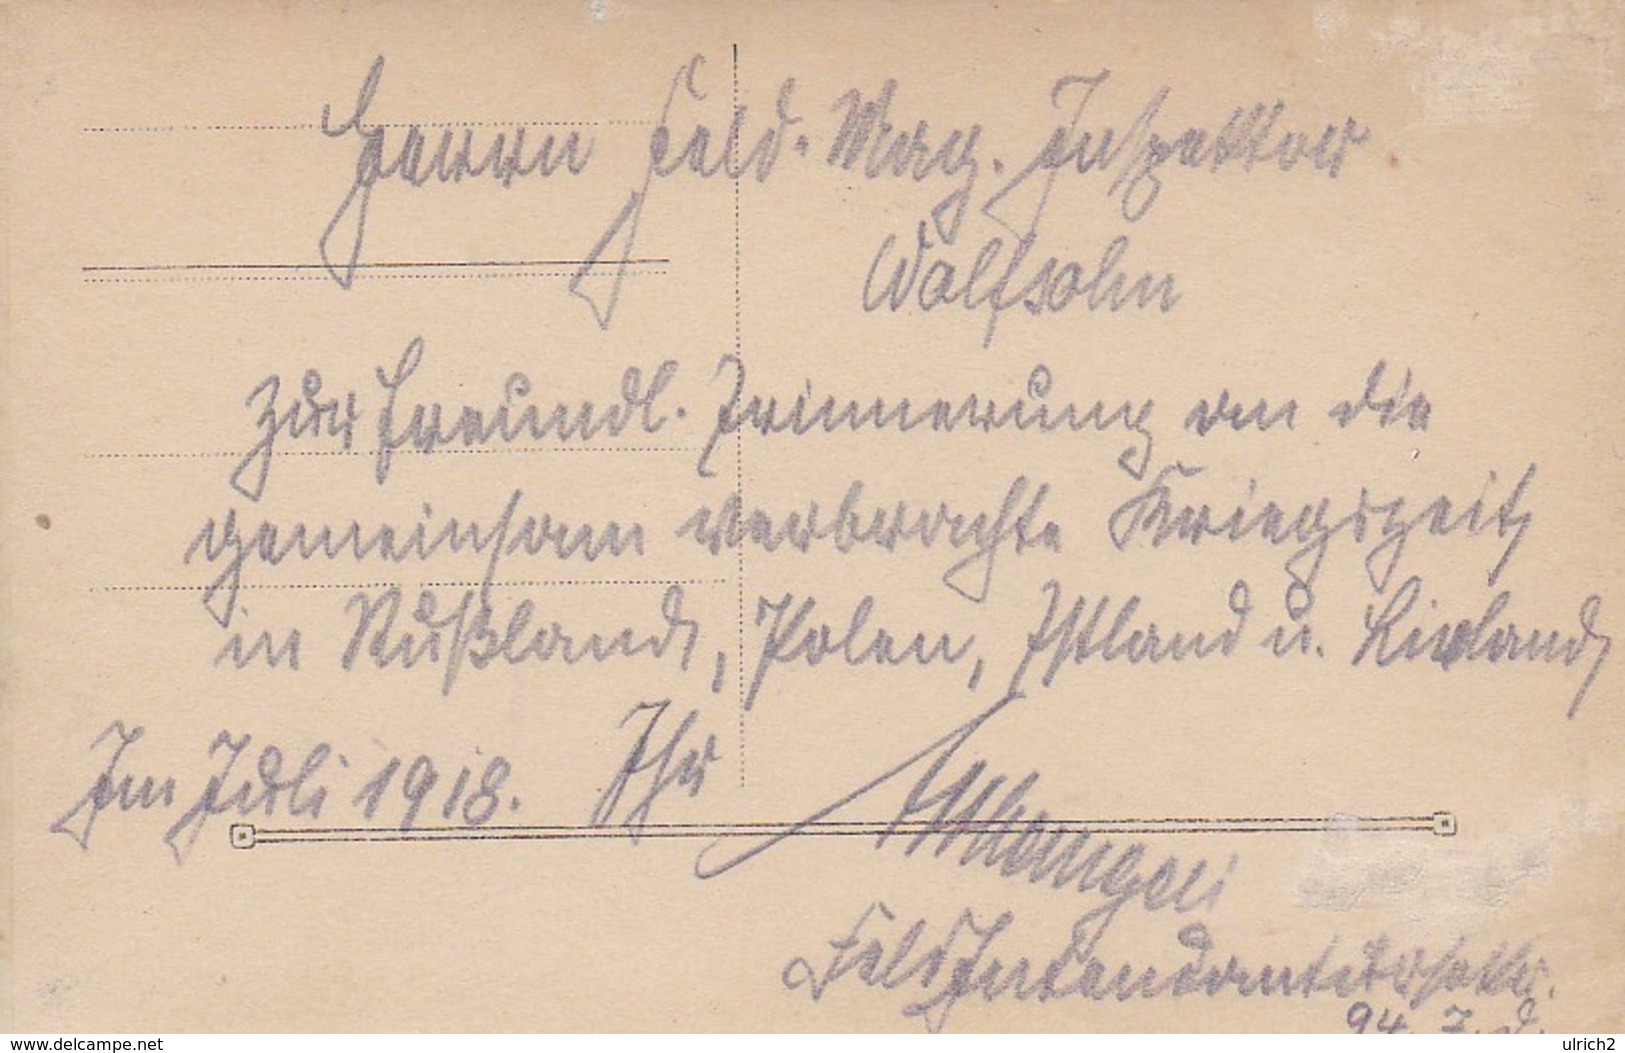 Herrn Feld. Mag. Inspektor
Wolfsohn
zur freundl. Erinnerung an die
gemeinsam verbrachte Kriegszeit
in Rußland, Polen, Estland u. Livland
Im Juli 1918. Ihr
Feld Intendantursekr.
94. I. D.
delcampe.net
ulrich2